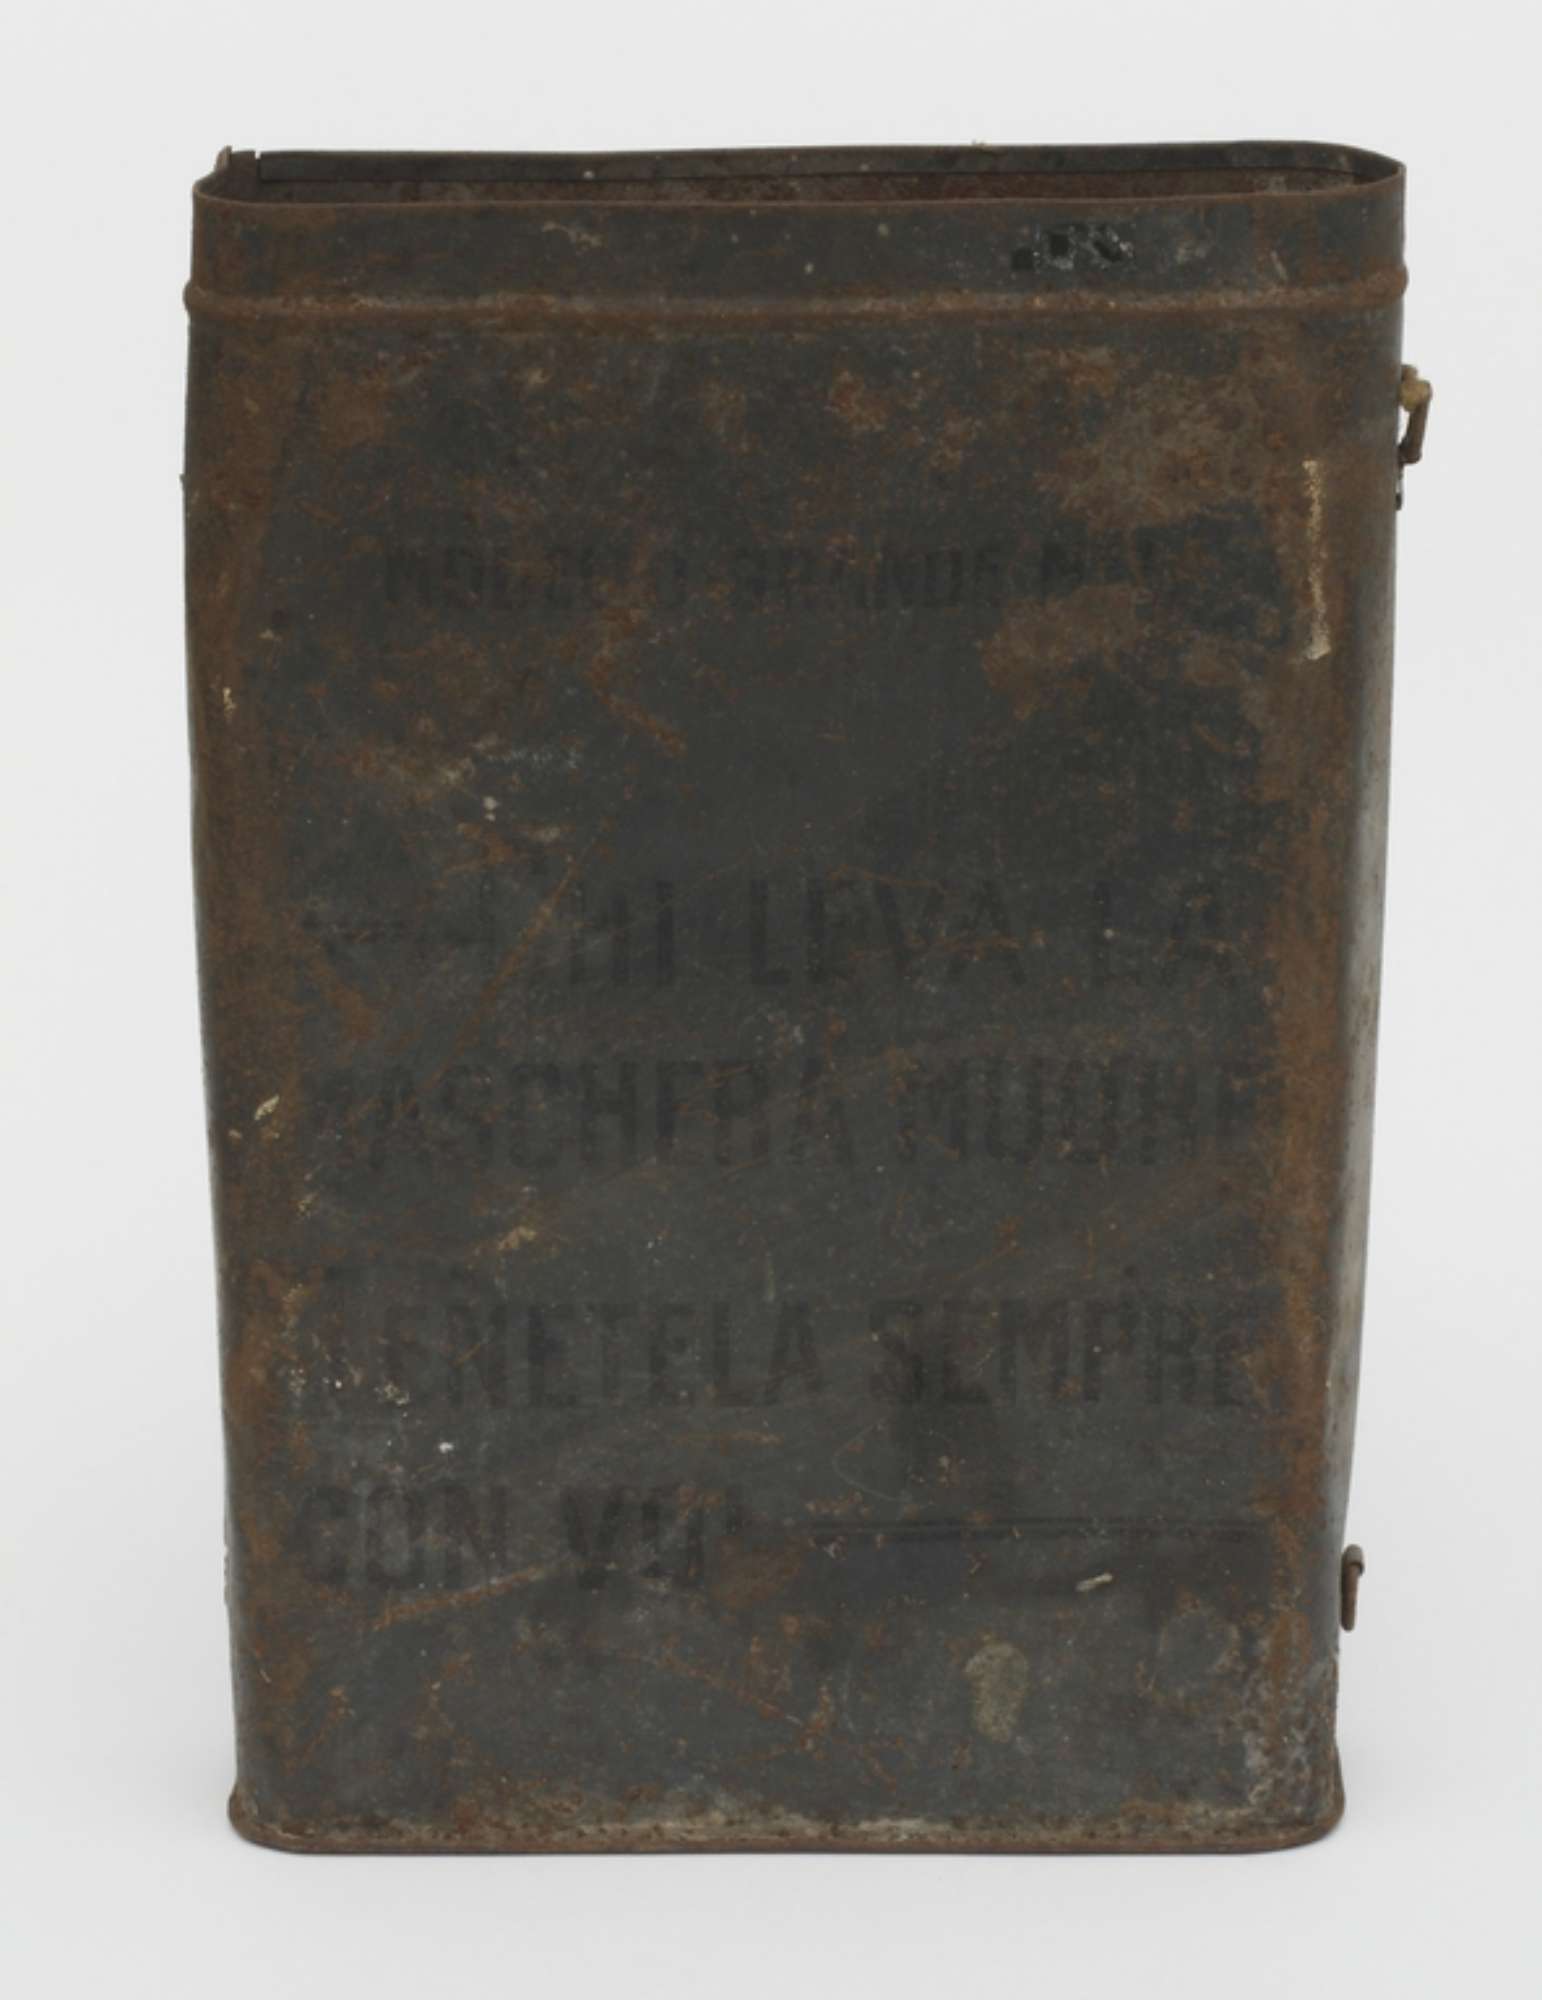 MODELLO GRANDE Nº 1
CHI LEVA LA
MASCHERA MUORE
TENETELA SEMPRE
CON VOI